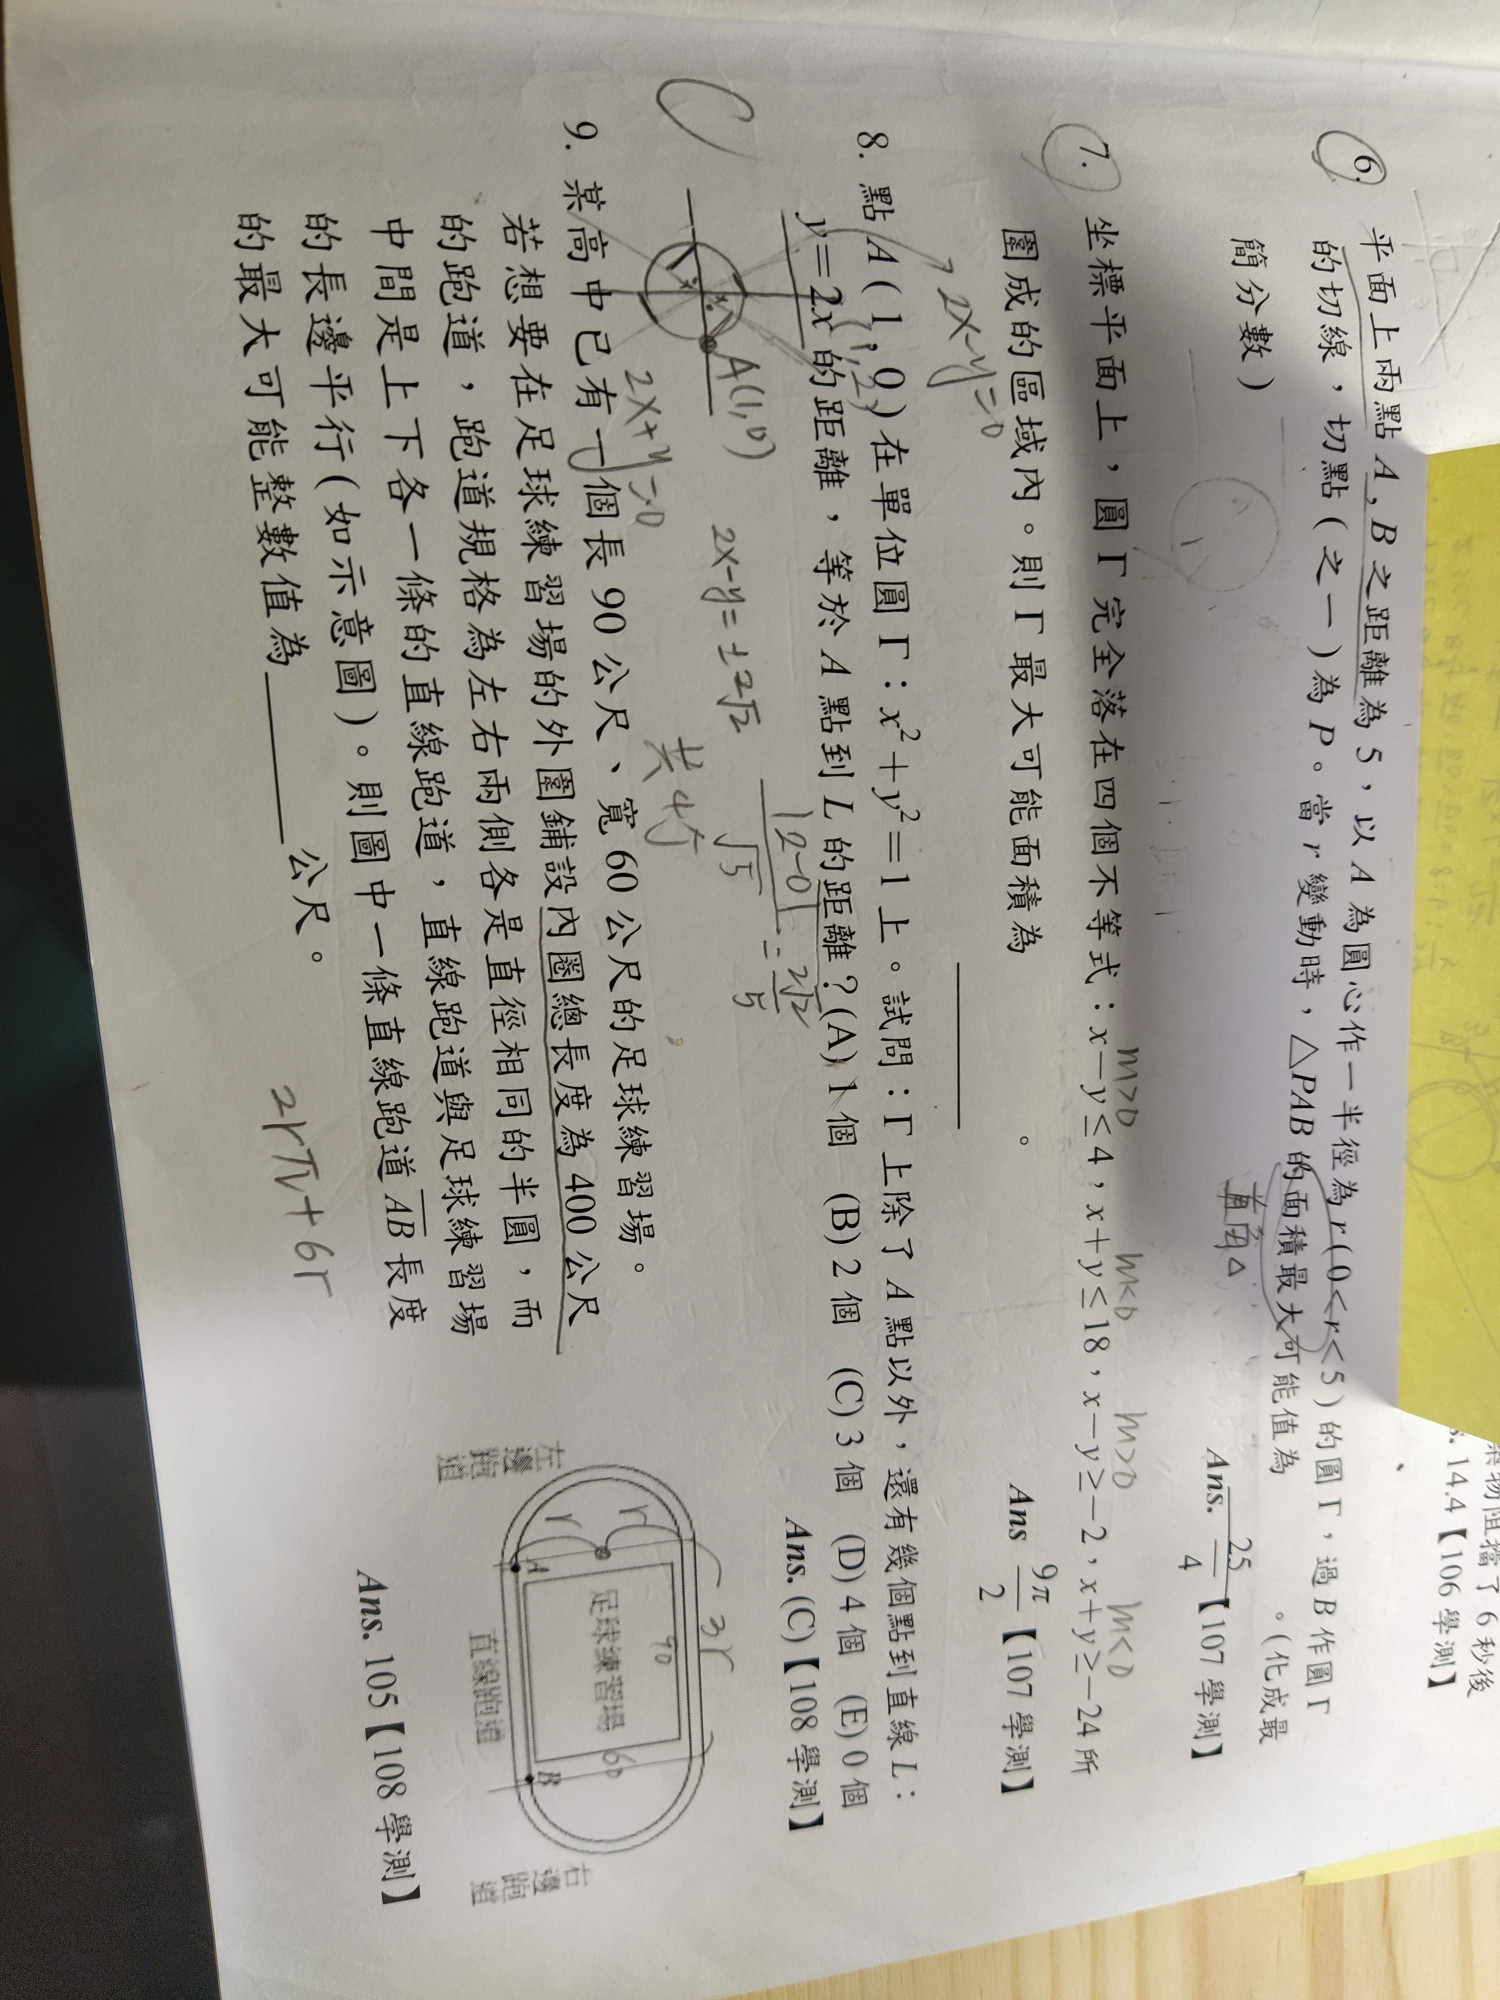 案物阻擋了 6 秒後
s. 14.4【106 學測】
6. 平面上兩點 A , B 之距離為 5,以 A 為圓心作一半徑為 r ( 0 < r < 5 ) 的圓 Γ,過 B 作圓 Γ
的切線,切點(之一)為 P。當 r 變動時,△PAB 的面積最大可能值為 。(化成最
簡分數)
Ans. 25/4【107 學測】
m>0 m<0 m>0 m<0
7. 坐標平面上,圓 Γ 完全落在四個不等式:x−y≤4,x+y≤18,x−y≥−2,x+y≥−24 所
圍成的區域內。則 Γ 最大可能面積為 ______ 。
Ans 9π/2【107 學測】
2x-y=0
8. 點 A ( 1 , 0 ) 在單位圓 Γ:x²+y²=1 上。試問:Γ 上除了 A 點以外,還有幾個點到直線 L:
y=2x 的距離,等於 A 點到 L 的距離?(A) 1 個 (B) 2 個 (C) 3 個 (D) 4 個 (E) 0 個
Ans. (C)【108 學測】
A(1,0)
2x-y=±2√2
|2-0|/√5 = 2√2/5
2x+y=0
共4個
9. 某高中已有一個長 90 公尺、寬 60 公尺的足球練習場。
若想要在足球練習場的外圍鋪設內圈總長度為 400 公尺
的跑道,跑道規格為左右兩側各是直徑相同的半圓,而
中間是上下各一條的直線跑道,直線跑道與足球練習場
的長邊平行(如示意圖)。則圖中一條直線跑道 AB 長度
的最大可能整數值為______公尺。
2rπ+6r
左邊跑道
r
r
3r
90
足球練習場
60
A
B
直線跑道
右邊跑道
Ans. 105【108 學測】